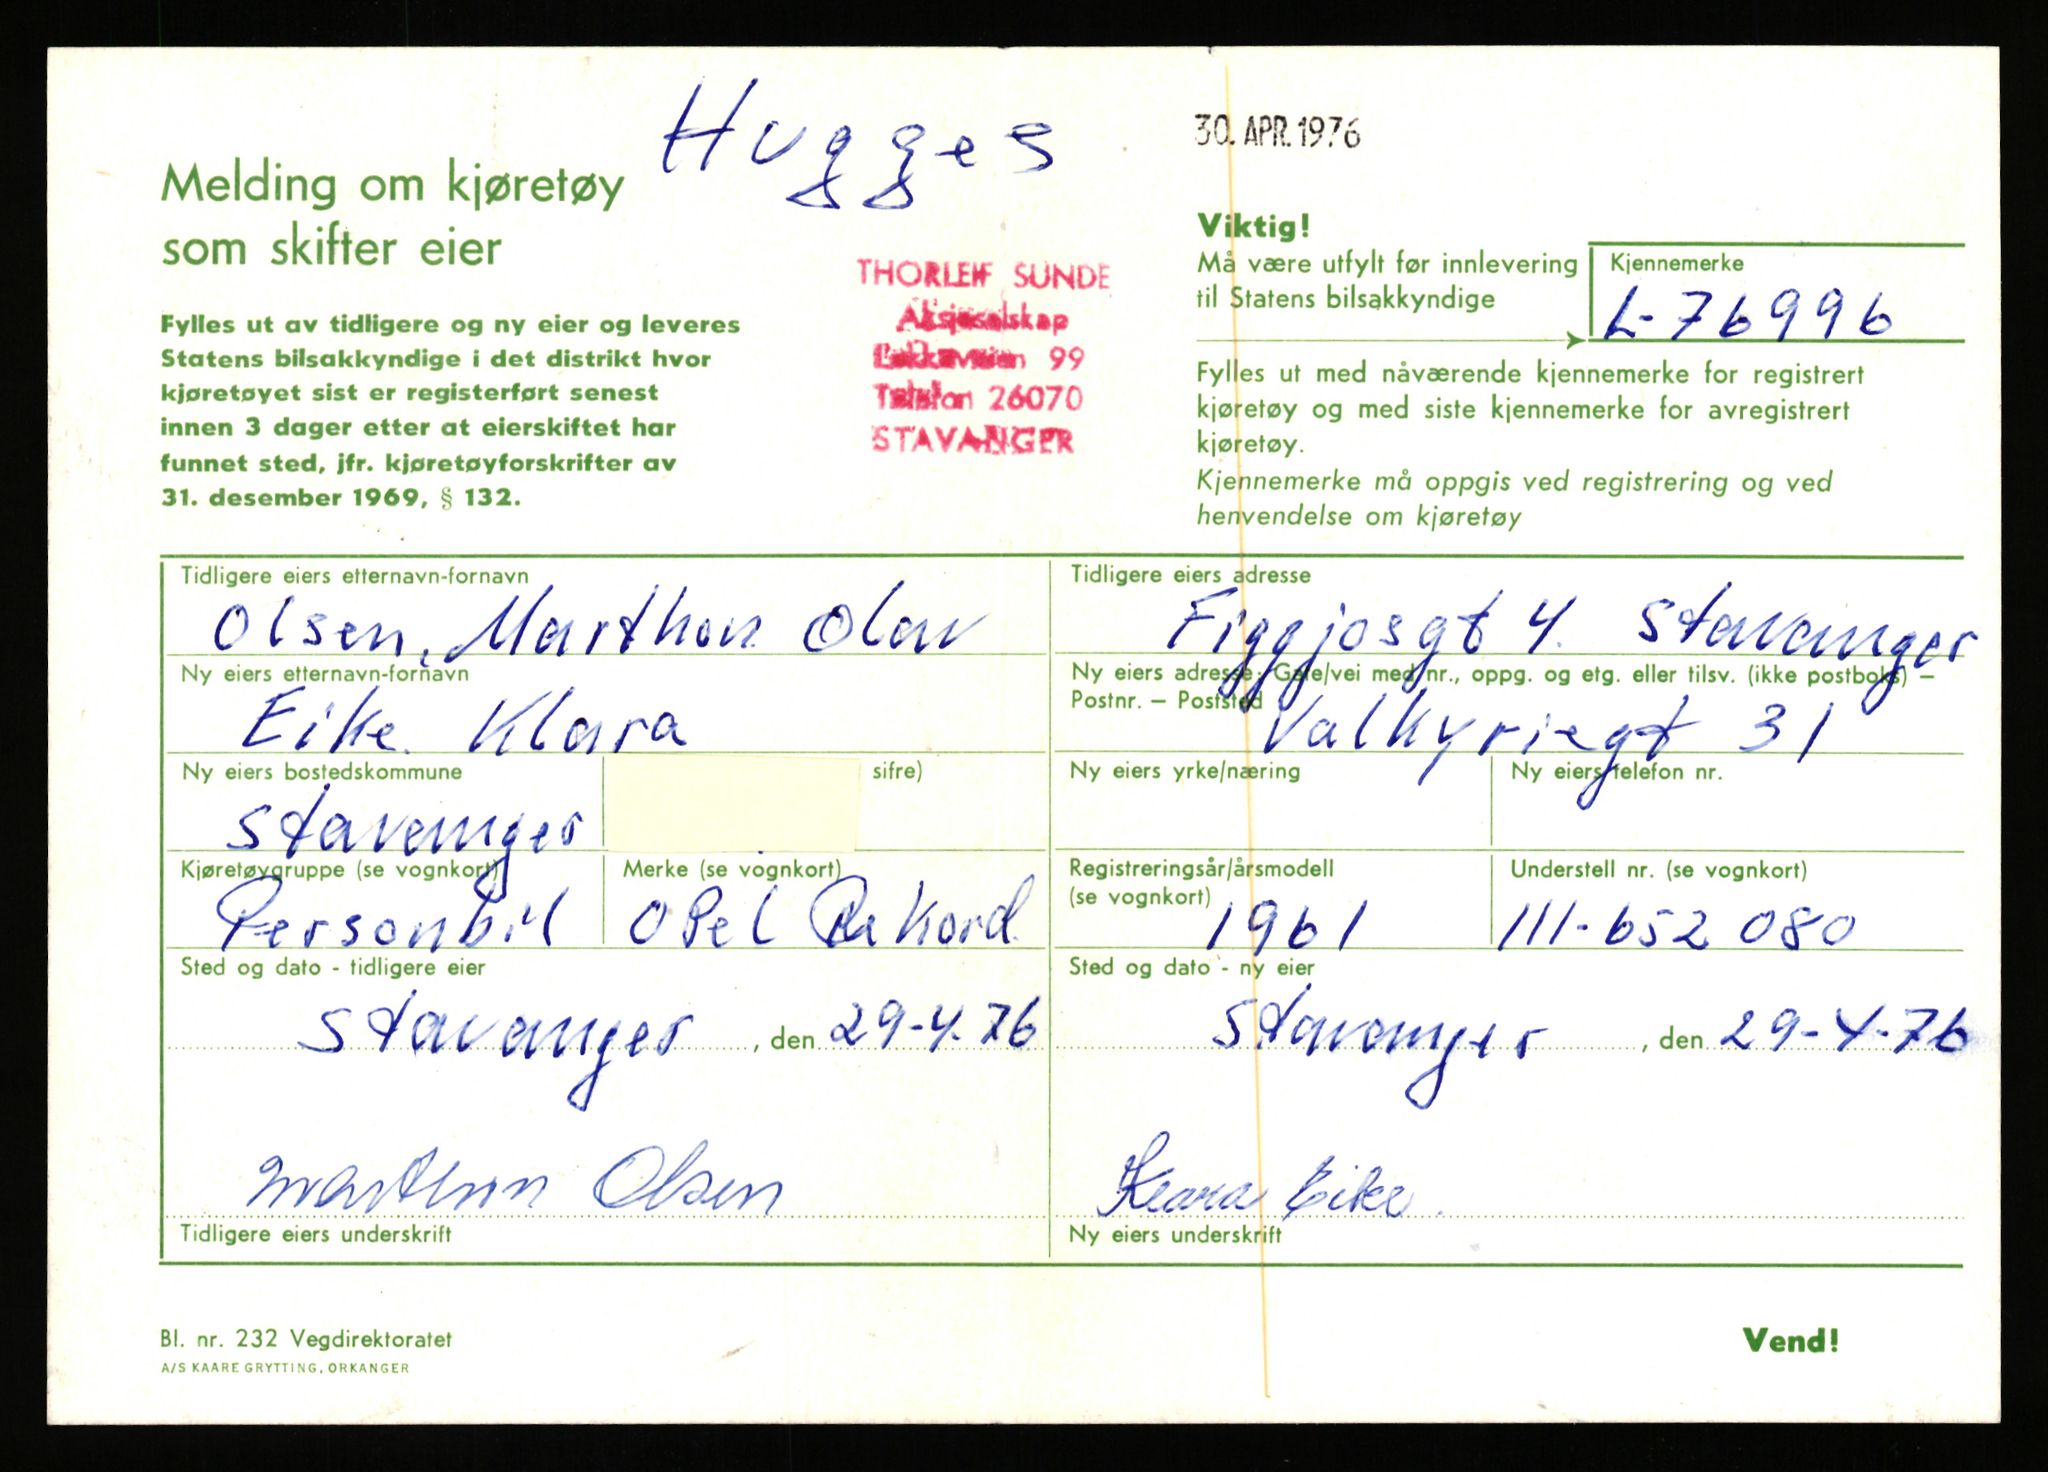 Hugges
30. APR. 1976
Melding om kjøretøy
som skifter eier
Fylles ut av tidligere og ny eier og leveres
Statens bilsakkyndige i det distrikt hvor
kjøretøyet sist er registerført senest
innen 3 dager etter at eierskiftet har
funnet sted, jfr. kjøretøyforskrifter av
31. desember 1969, § 132.
THORLEIF SUNDE
Aksjeselskap
99
Telefon 26070
STAVANGER
Viktig!
Må være utfylt før innlevering
til Statens bilsakkyndige
Kjennemerke
L-76996
Fylles ut med nåværende kjennemerke for registrert
kjøretøy og med siste kjennemerke for avregistrert
kjøretøy.
Kjennemerke må oppgis ved registrering og ved
henvendelse om kjøretøy
Tidligere eiers etternavn-fornavn
Olsen, Marthon Olav
Tidligere eiers adresse
Figgjosgt 4. Stavanger
Ny eiers etternavn-fornavn
Eike Klara
Ny eiers adresse: Gate/vei med nr., oppg. og etg. eller tilsv. (ikke postboks) –
Postnr. – Poststed
Valkyriegt 31
Ny eiers bostedskommune
Stavanger
sifre)
Ny eiers yrke/næring
Ny eiers telefon nr.
Kjøretøygruppe (se vognkort)
Personbil
Merke (se vognkort)
OPel Rekord
Registreringsår/årsmodell
(se vognkort)
1961
Understell nr. (se vognkort)
111-652 080
Sted og dato - tidligere eier
Stavanger, den 29-4-76
Sted og dato - ny eier
Stavanger, den 29-4-76
Marthon Olsen
Tidligere eiers underskrift
Klara Eike.
Ny eiers underskrift
Bl. nr. 232 Vegdirektoratet
A/S KAARE GRYTTING, ORKANGER
Vend!